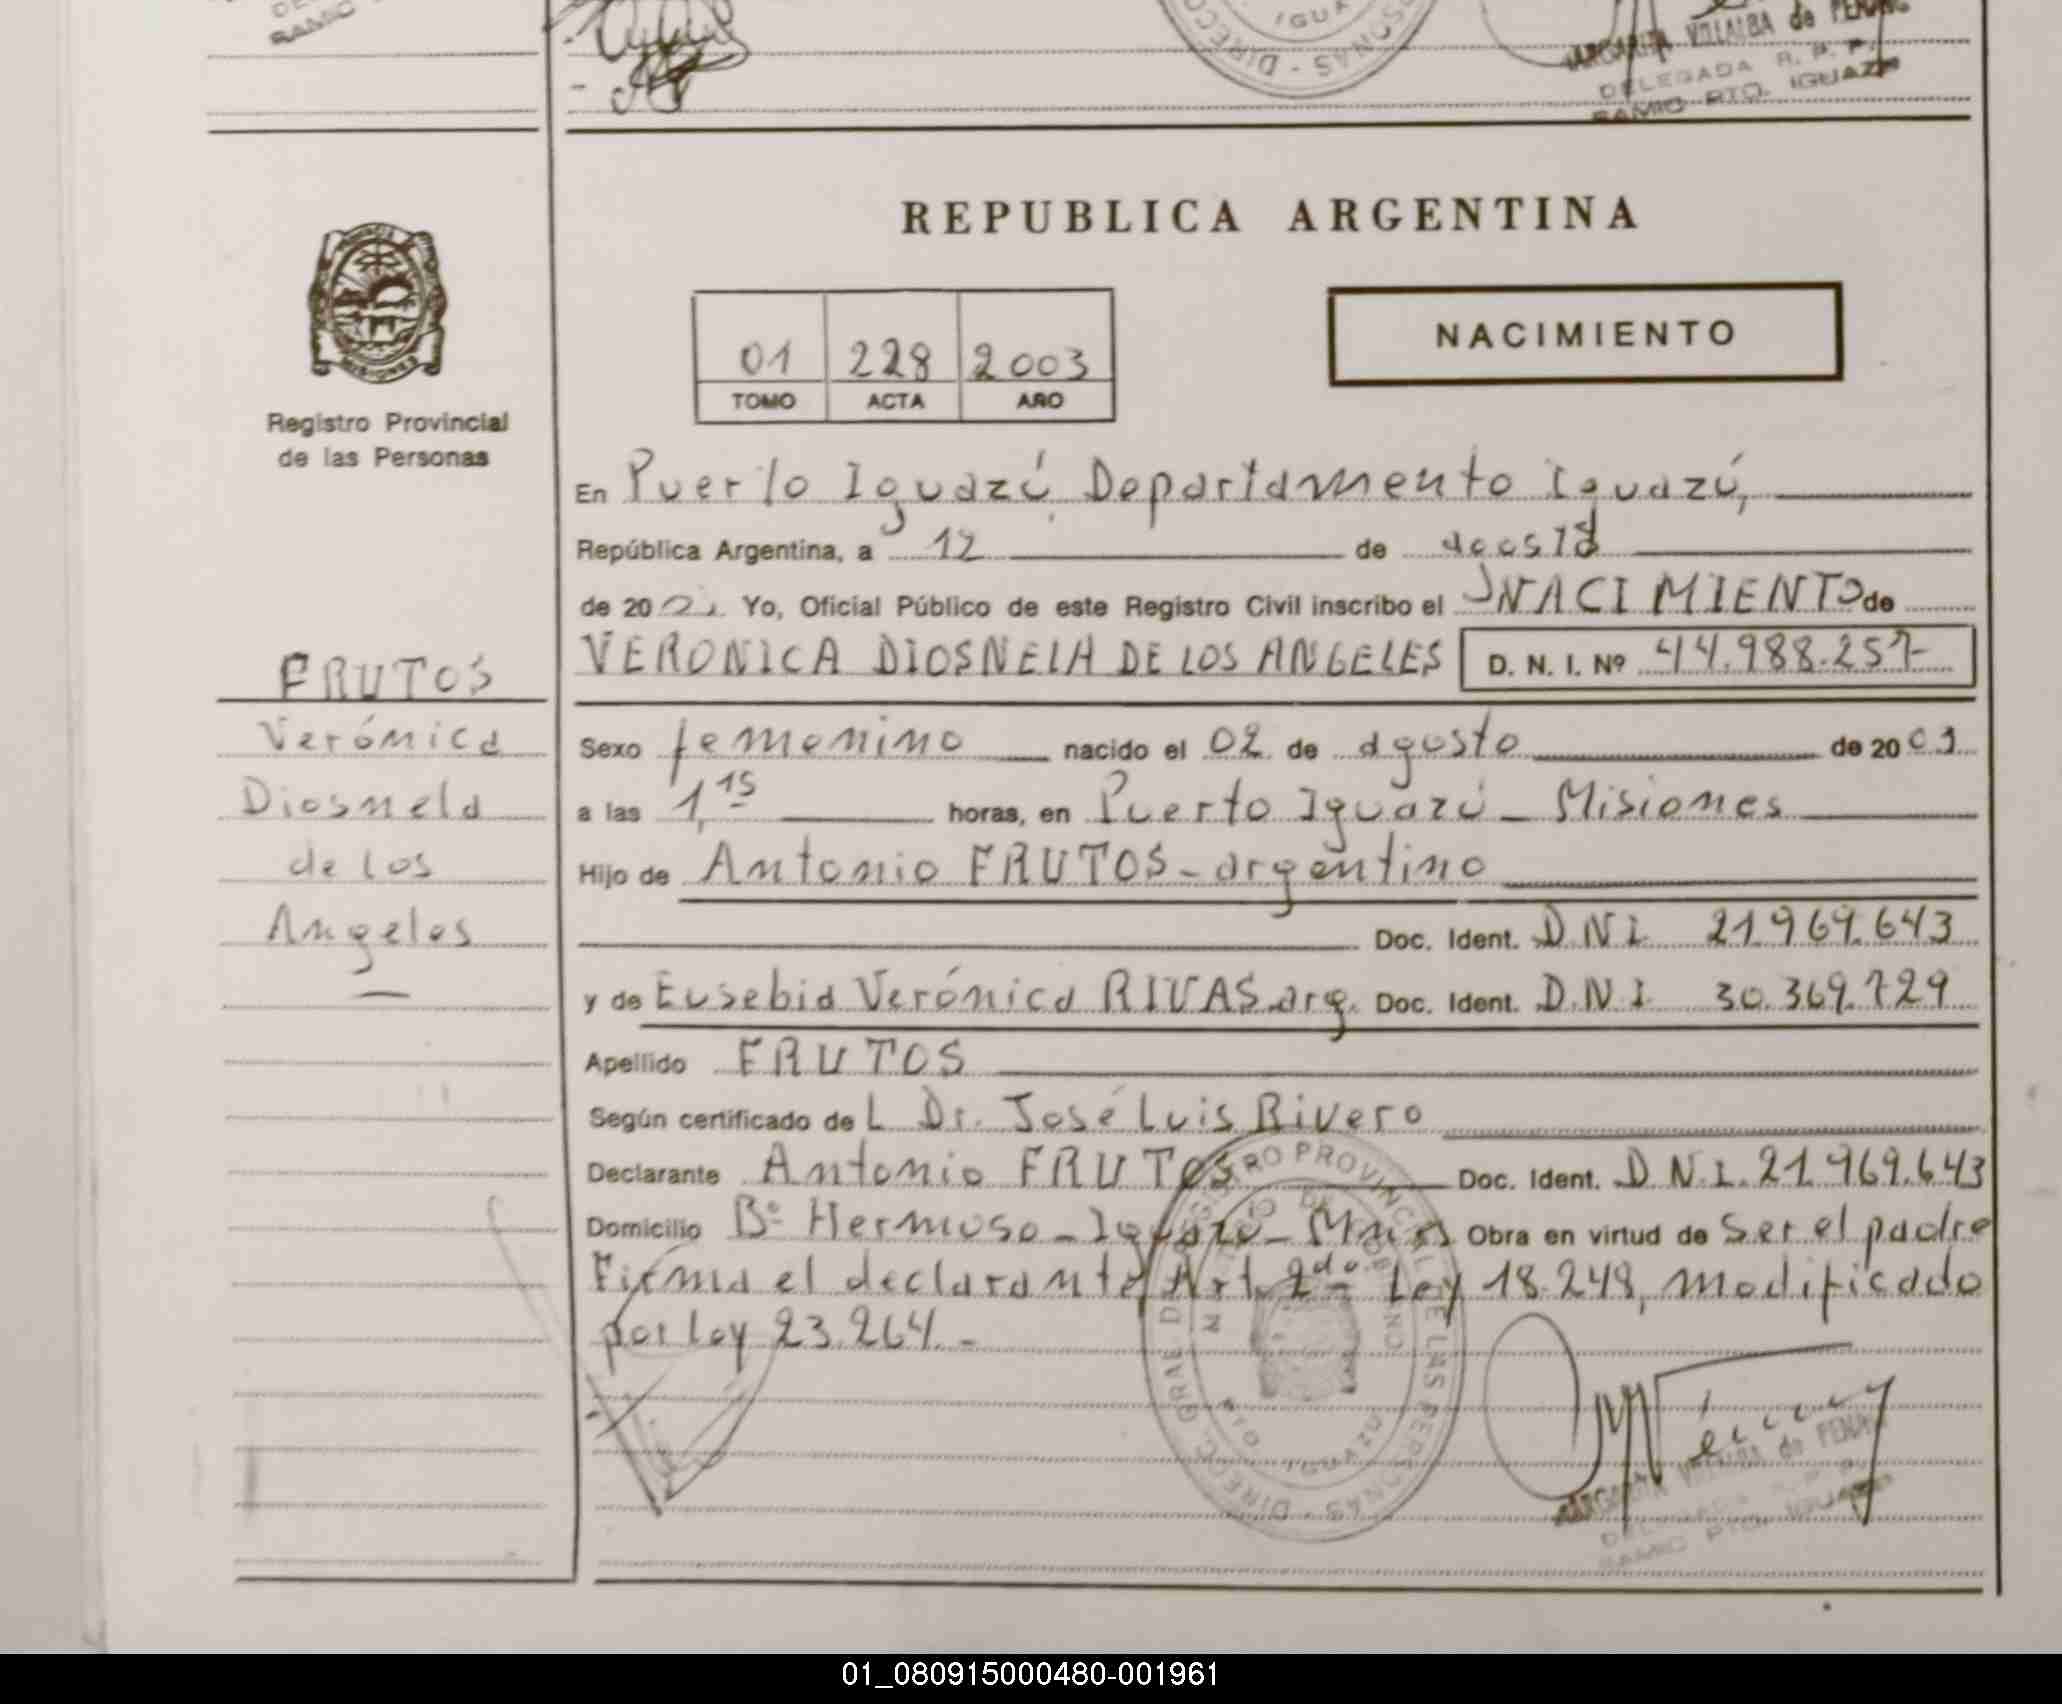 RAMIO
IGUA
DIRECC
SONAS
MARGARITA VILLALBA de PENANG
DELEGADA R. P. P.
RAMIC PTO. IGUAZU
REPUBLICA ARGENTINA
NACIMIENTO
01 228 2003
TOMO ACTA AÑO
Registro Provincial
de las Personas
En Puerto Iguazú, Departamento Iguazú,
República Argentina, a 12 de agosto
de 200 Yo, Oficial Público de este Registro Civil inscribo el NACIMIENTO de
VERONICA DIOSNELA DE LOS ANGELES D. N. I. Nº 44.988.257
FRUTOS
Verónica
Diosnela
de los
Angeles
Sexo femenino nacido el 02 de agosto de 2003
a las 1,15 horas, en Puerto Iguazú - Misiones
Hijo de Antonio FRUTOS - argentino
Doc. Ident. D.N.I. 21.969.643
y de Eusebia Verónica RIVAS arg. Doc. Ident. D.N.I. 30.369.729
Apellido FRUTOS
Según certificado de L Dr. José Luis Rivero
Declarante Antonio FRUTOS Doc. Ident. D.N.I. 21.969.643
Domicilio Bº Hermoso - Iguazú - Mnes Obra en virtud de ser el padre
Firma el declarante, Art. 2do - Ley 18.248, modificado
por Ley 23.264. -
DIRECC. GRAL DE REGISTRO PROVINCIAL DE LAS PERSONAS
PTO IGUAZU
MARGARITA VILLALBA de PENA
DELEGADA R. P. P.
RAMIC PTO. IGUAZU
01_080915000480-001961